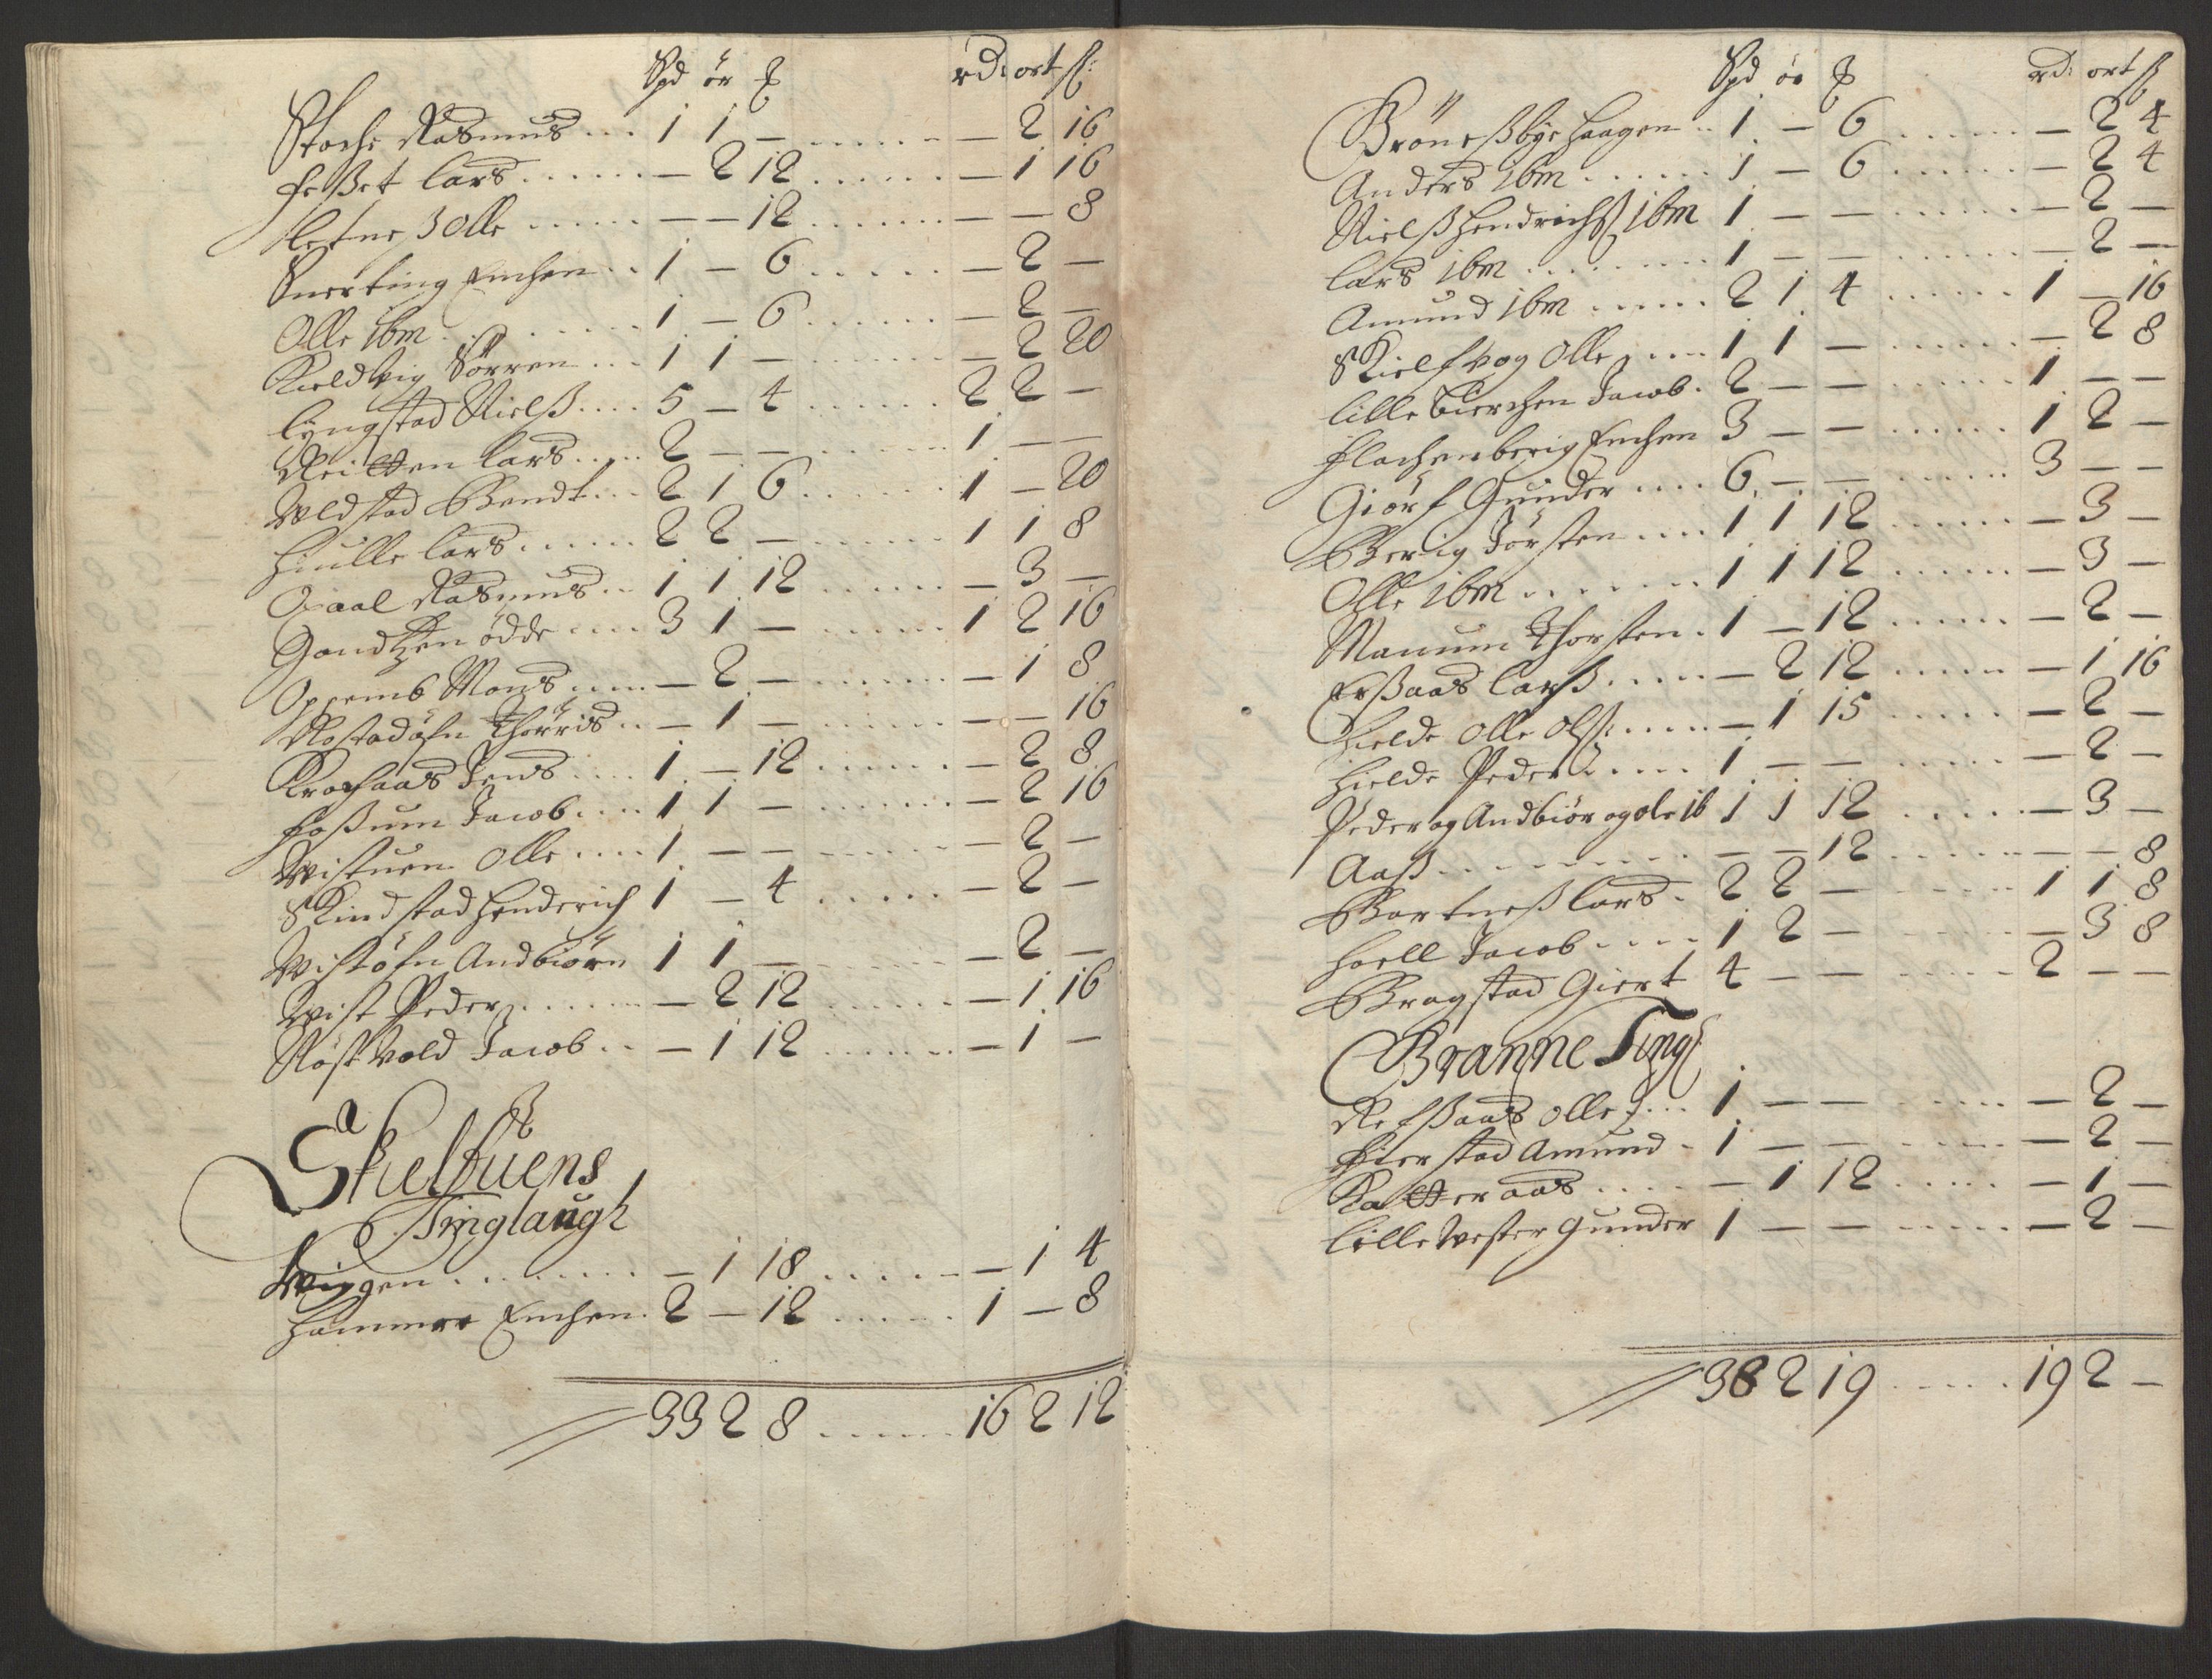 Spd ör ₰ rd: ort ß:
Stoche Rasmus ... 1 1 — ...... — 2 16
feßet lars ...... — 2 12 ...... — 1 16
letneß Olle ...... — — 12 ...... — — 8
Snerting Enchen .. 1 — 6 ...... — 2 —
Olle ibm ...... 1 — 6 ...... — 2 —
Kieldvig Sörren ... 1 1 — ...... — 2 20
lyngstad Nielß .... 5 — 4 ...... 2 2 —
Reitten lars .... 2 — — ...... 1 — —
Voldstad Bendt ... 2 1 6 ...... 1 — 20
Hiulle lars ..... 2 2 — ...... 1 1 8
Oxaal Rasmus .. 1 1 12 ...... — 3 —
Gondtzen ödde .... 3 1 — ...... 1 2 16
Opemb Mons .... — 2 — ...... — 1 8
Rostadöfn Thorris .. — 1 — ...... — — 16
Krogsaas Jens .... 1 — 12 ...... — 2 8
foßum Jacob .... 1 1 — ...... — 2 16
Wistuen Olle .... 1 — — ...... — 2 —
Skindstad Henderich 1 — 4 ..... — 2 —
Wistöfn Andbiörn 1 1 — ...... — 2 —
Wist Peder ...... — 2 12 ...... — 1 16
Röstvold Jacob .. — 1 12 ...... — 1 —
Skielfuens
Tinglaugh
Wiggen ....... — 1 18 ...... — 1 4
Hammer Enchen . 2 — 12 ...... 1 — 8
33 2 8 ...... 16 2 12
Spd ör ₰ rd: ort ß
Bröneßbye Haagen .. 1 — 6 ...... — 2 4
Anders ibm ...... 1 — 6 ...... — 2 4
Nielß Hendrichß ibm 1 — — — 2 —
lars ibm ........ 1 — — ...... — 2 —
Amund ibm ..... 2 1 4 ...... 1 — 16
Skielfvog Olle .... 1 1 — ...... — 2 8
lille Bierchen Jacob . 2 — — ...... 1 — —
flachenberig Enchen 3 — — ...... 1 2 —
Giörf Gunder .... 6 — — ...... 3 — —
Berig Törsten .... 1 1 12 ...... — 3 —
Olle ibm ....... 1 1 12 ...... — 3 —
Manum Thorsten . 1 — 12 ...... — 2 —
Erßaas larß ..... — 2 12 ..... — 1 16
Hielde Olle Olß: .... — 1 15 ..... — 2 —
Hielde Peder .... 1 — — ...... — 2 —
Peder og Andbiör og ole ib 1 1 12 ..... — 3 —
Aaß .......... — — 12 ...... — — 8
Bartneß lars . 2 2 — ...... 1 1 8
hoell Jacob .... 1 2 — ...... — 3 8
Bragstad Giert 4 — — ...... 2 — —
Branne Tingl
Refßaas Olle ... 1 — — ...... — 2 —
fierstad Amund . 1 — — ...... — 2 —
Katteraas .... — 1 12 ...... — 1 —
lille Wester Gunder 1 — — ...... — 2 —
38 2 19 ...... 19 2 —